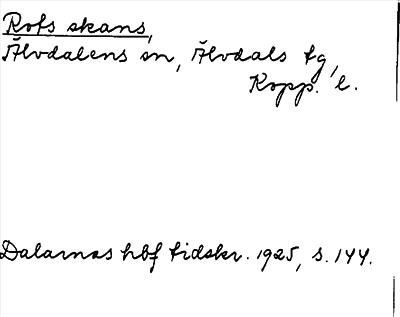 Rots skans,
Älvdalens sn, Älvdals tg,
Kopp. l.
Dalarnas hbf tidskr. 1925, s. 144.